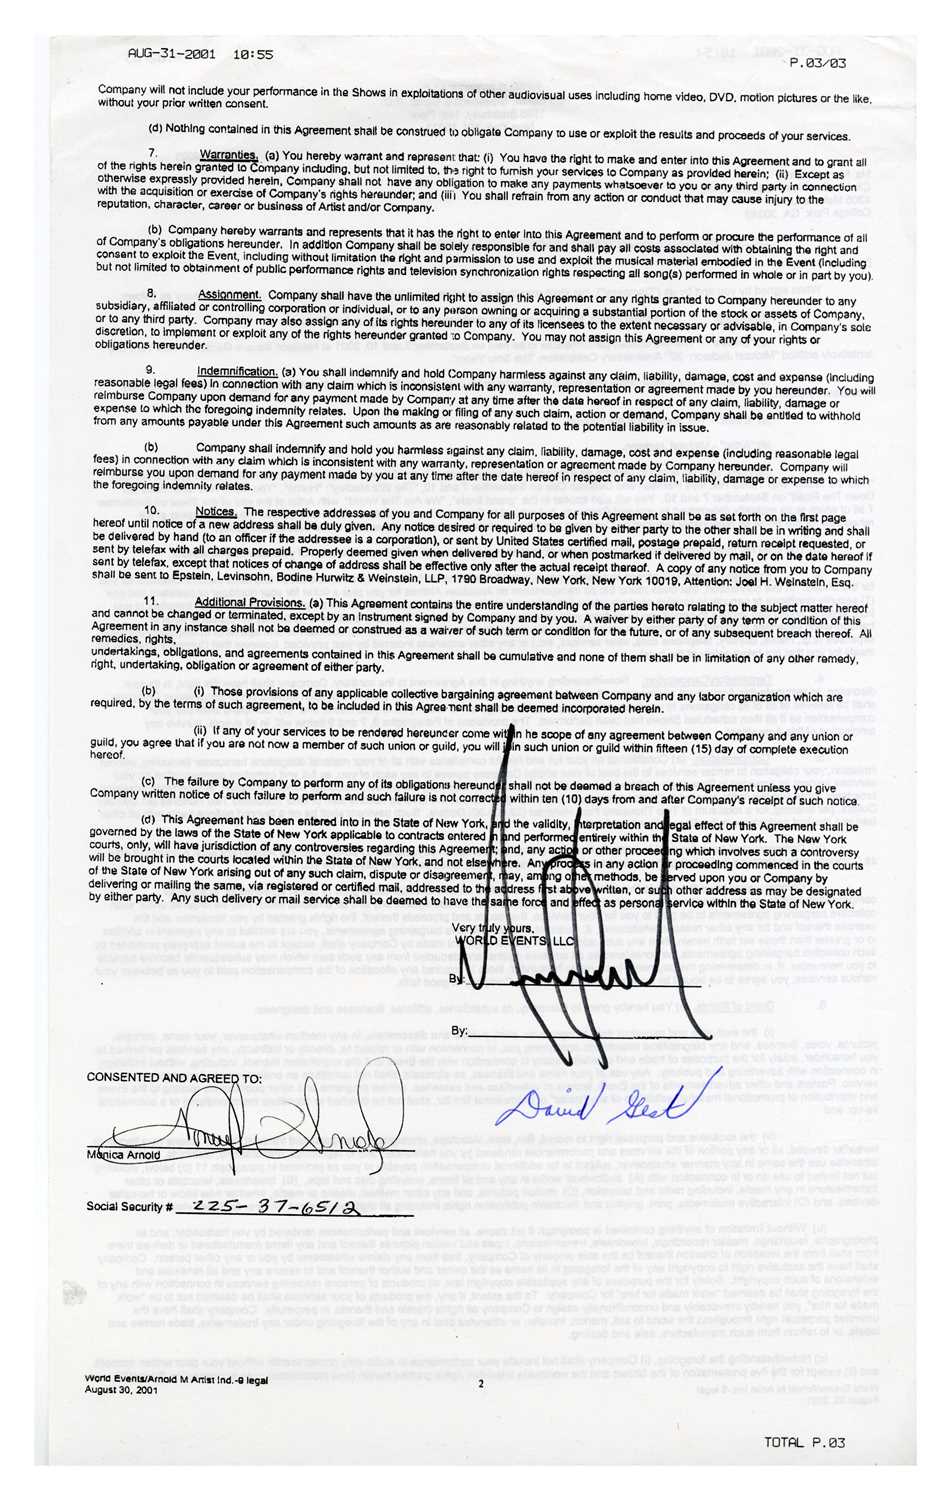 AUG-31-2001 10:55
P.03/03
Company will not include your performance in the Shows in exploitations of other audiovisual uses including home video, DVD, motion pictures or the like,
without your prior written consent.
(d) Nothing contained in this Agreement shall be construed to obligate Company to use or exploit the results and proceeds of your services.
7. Warranties. (a) You hereby warrant and represent that: (i) You have the right to make and enter into this Agreement and to grant all
of the rights herein granted to Company including, but not limited to, the right to furnish your services to Company as provided herein; (ii) Except as
otherwise expressly provided herein, Company shall not have any obligation to make any payments whatsoever to you or any third party in connection
with the acquisition or exercise of Company's rights hereunder; and (iii) You shall refrain from any action or conduct that may cause injury to the
reputation, character, career or business of Artist and/or Company.
(b) Company hereby warrants and represents that it has the right to enter into this Agreement and to perform or procure the performance of all
of Company's obligations hereunder. In addition Company shall be solely responsible for and shall pay all costs associated with obtaining the right and
consent to exploit the Event, including without limitation the right and permission to use and exploit the musical material embodied in the Event (including
but not limited to obtainment of public performance rights and television synchronization rights respecting all song(s) performed in whole or in part by you).
8. Assignment. Company shall have the unlimited right to assign this Agreement or any rights granted to Company hereunder to any
subsidiary, affiliated or controlling corporation or individual, or to any person owning or acquiring a substantial portion of the stock or assets of Company,
or to any third party. Company may also assign any of its rights hereunder to any of its licensees to the extent necessary or advisable, in Company's sole
discretion, to implement or exploit any of the rights hereunder granted to Company. You may not assign this Agreement or any of your rights or
obligations hereunder.
9. Indemnification. (a) You shall indemnify and hold Company harmless against any claim, liability, damage, cost and expense (including
reasonable legal fees) in connection with any claim which is inconsistent with any warranty, representation or agreement made by you hereunder. You will
reimburse Company upon demand for any payment made by Company at any time after the date hereof in respect of any claim, liability, damage or
expense to which the foregoing indemnity relates. Upon the making or filing of any such claim, action or demand, Company shall be entitled to withhold
from any amounts payable under this Agreement such amounts as are reasonably related to the potential liability in issue.
(b) Company shall indemnify and hold you harmless against any claim, liability, damage, cost and expense (including reasonable legal
fees) in connection with any claim which is inconsistent with any warranty, representation or agreement made by Company hereunder. Company will
reimburse you upon demand for any payment made by you at any time after the date hereof in respect of any claim, liability, damage or expense to which
the foregoing indemnity relates.
10. Notices. The respective addresses of you and Company for all purposes of this Agreement shall be as set forth on the first page
hereof until notice of a new address shall be duly given. Any notice desired or required to be given by either party to the other shall be in writing and shall
be delivered by hand (to an officer if the addressee is a corporation), or sent by United States certified mail, postage prepaid, return receipt requested, or
sent by telefax with all charges prepaid. Properly deemed given when delivered by hand, or when postmarked if delivered by mail, or on the date hereof if
sent by telefax, except that notices of change of address shall be effective only after the actual receipt thereof. A copy of any notice from you to Company
shall be sent to Epstein, Levinsohn, Bodine Hurwitz & Weinstein, LLP, 1790 Broadway, New York, New York 10019, Attention: Joel H. Weinstein, Esq.
11. Additional Provisions. (a) This Agreement contains the entire understanding of the parties hereto relating to the subject matter hereof
and cannot be changed or terminated, except by an instrument signed by Company and by you. A waiver by either party of any term or condition of this
Agreement in any instance shall not be deemed or construed as a waiver of such term or condition for the future, or of any subsequent breach thereof. All
remedies, rights,
undertakings, obligations, and agreements contained in this Agreement shall be cumulative and none of them shall be in limitation of any other remedy,
right, undertaking, obligation or agreement of either party.
(b) (i) Those provisions of any applicable collective bargaining agreement between Company and any labor organization which are
required, by the terms of such agreement, to be included in this Agreement shall be deemed incorporated herein.
(ii) If any of your services to be rendered hereunder come within he scope of any agreement between Company and any union or
guild, you agree that if you are not now a member of such union or guild, you will join such union or guild within fifteen (15) day of complete execution
hereof.
(c) The failure by Company to perform any of its obligations hereunder shall not be deemed a breach of this Agreement unless you give
Company written notice of such failure to perform and such failure is not corrected within ten (10) days from and after Company's receipt of such notice.
(d) This Agreement has been entered into in the State of New York, and the validity, interpretation and legal effect of this Agreement shall be
governed by the laws of the State of New York applicable to contracts entered in and performed entirely within the State of New York. The New York
courts, only, will have jurisdiction of any controversies regarding this Agreement; and, any action or other proceeding which involves such a controversy
will be brought in the courts located within the State of New York, and not elsewhere. Any process in any action or proceeding commenced in the courts
of the State of New York arising out of any such claim, dispute or disagreement, may, among other methods, be served upon you or Company by
delivering or mailing the same, via registered or certified mail, addressed to the address first above written, or such other address as may be designated
by either party. Any such delivery or mail service shall be deemed to have the same force and effect as personal service within the State of New York.
Very truly yours,
WORLD EVENTS, LLC
By:
By:
David Gest
CONSENTED AND AGREED TO:
Monica Arnold
Social Security # [redacted]
World Events/Arnold M Artist Ind.-9 legal
August 30, 2001
2
TOTAL P.03